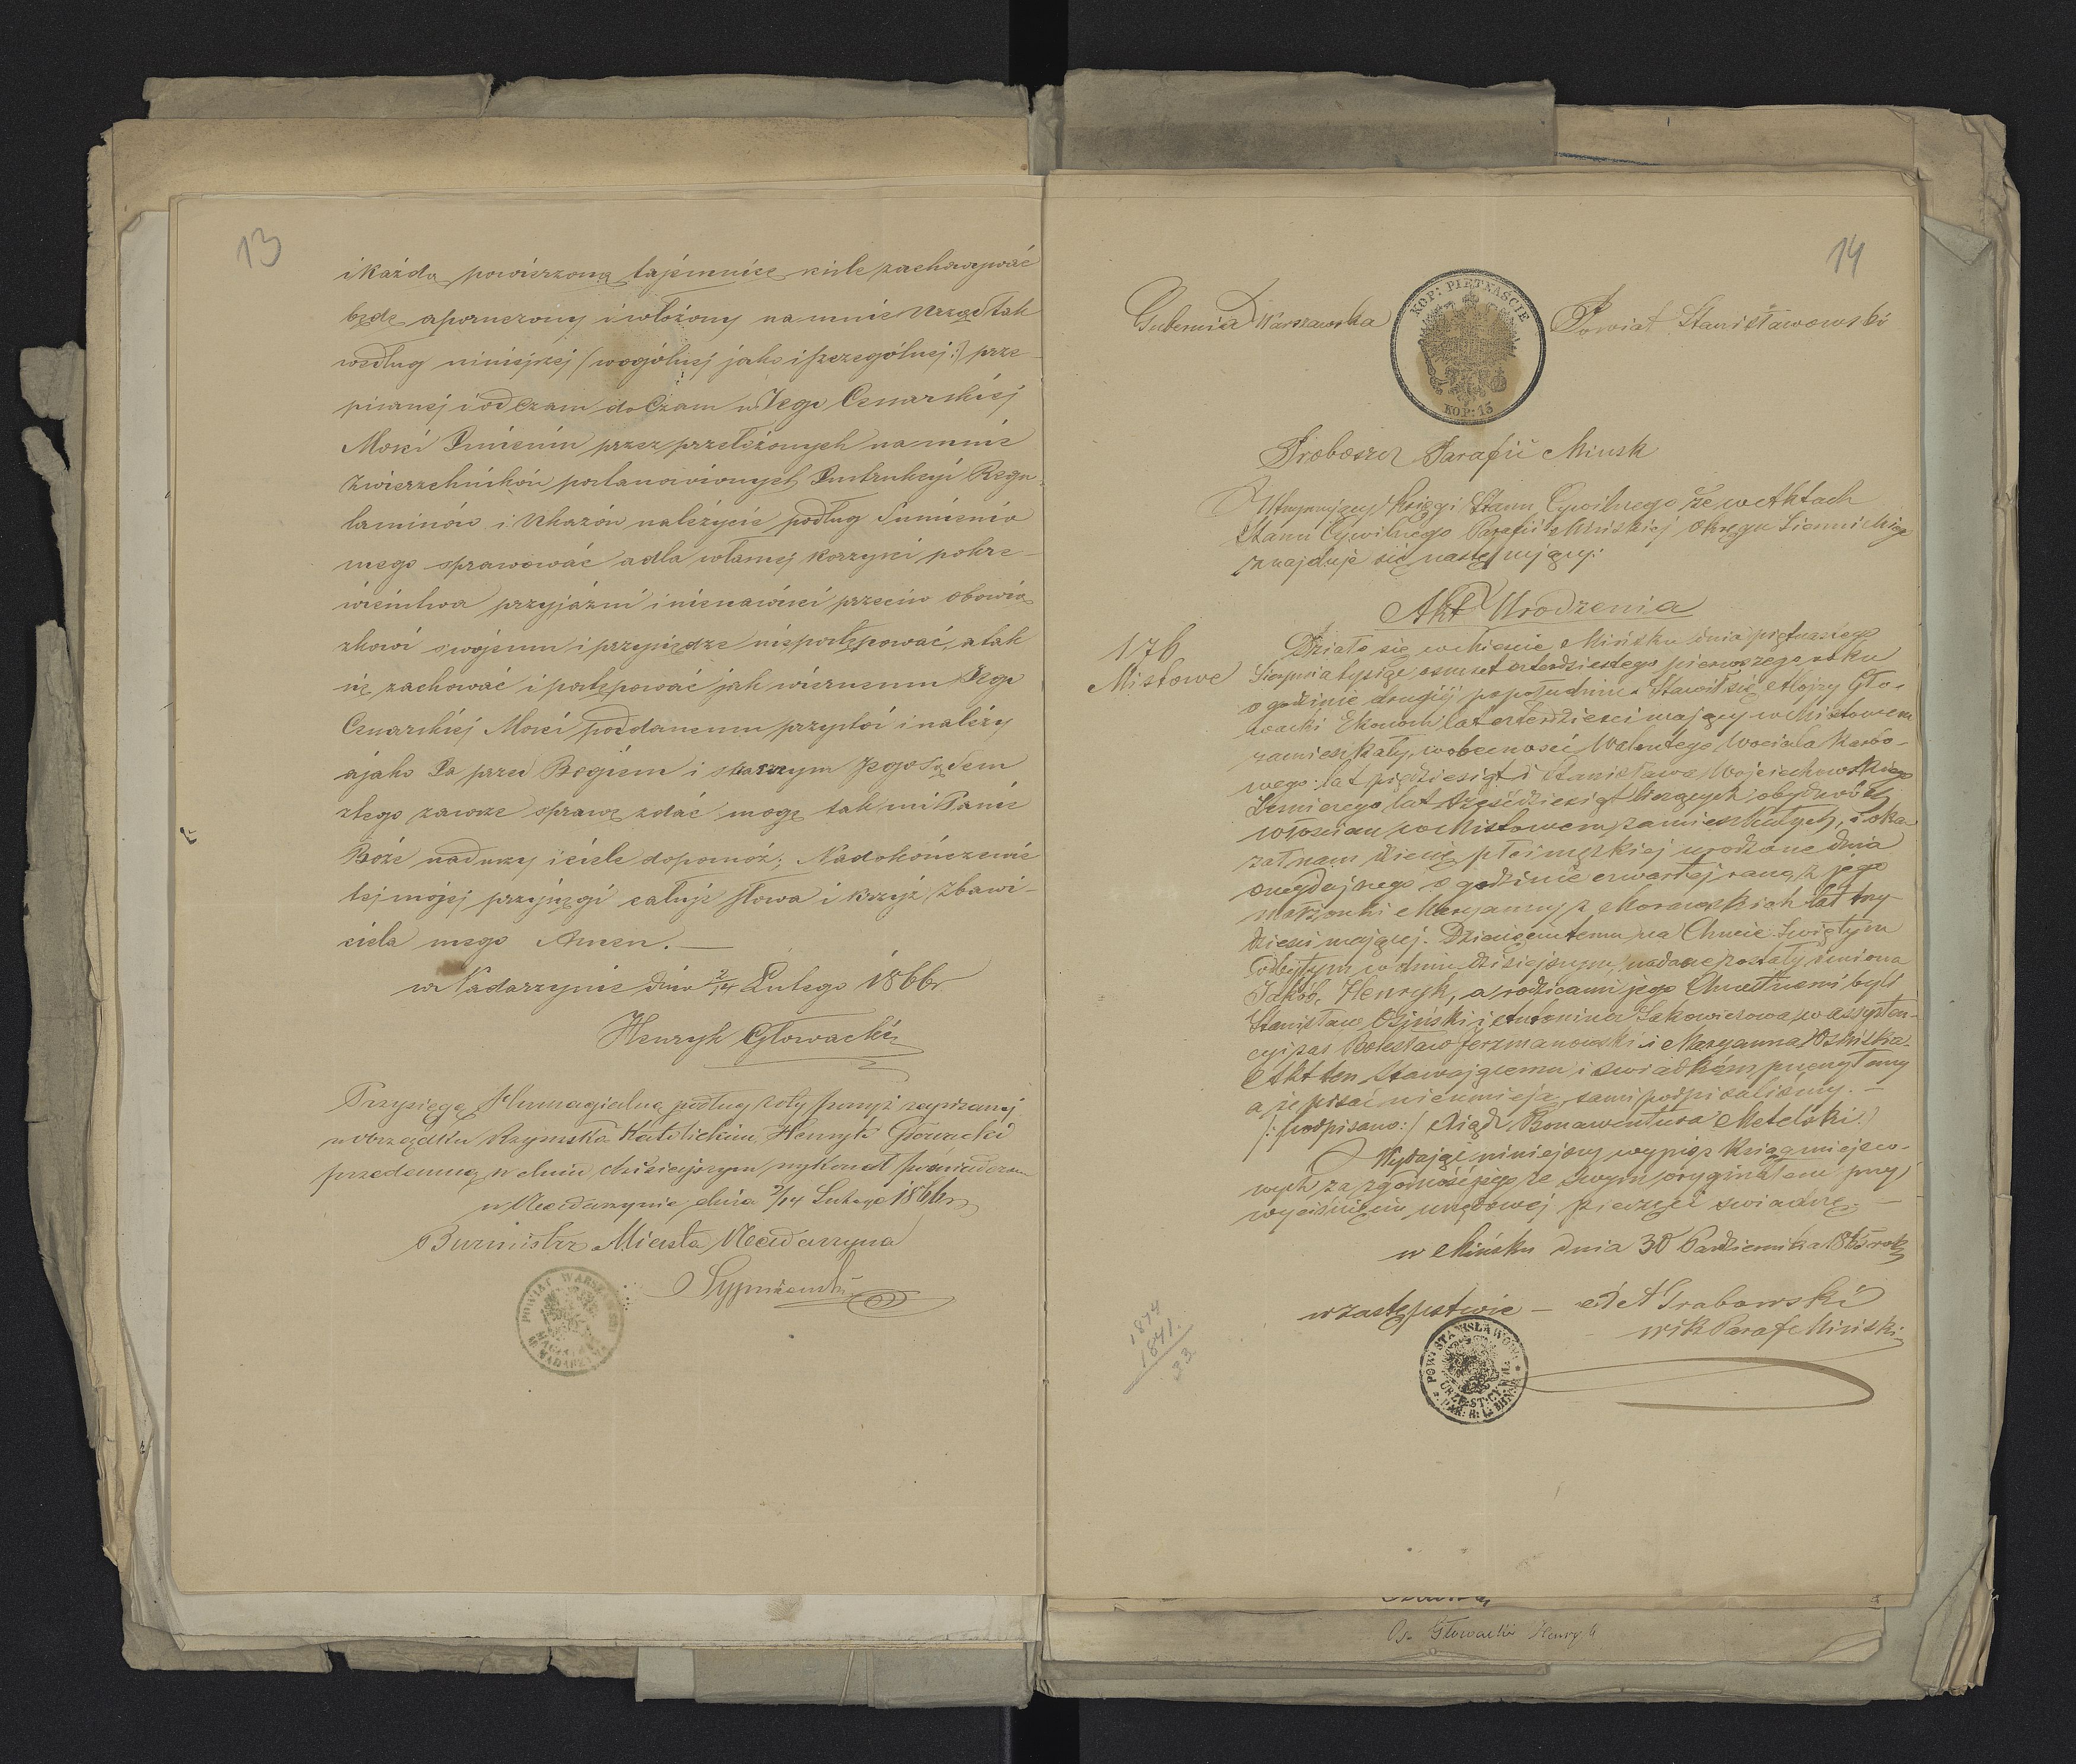 13
i każdą powierzoną tajemnicę ściśle zachowywać
będę a poruczony i włożony na mnie Urząd tak
według niniejszej (w ogólnej jako i szczególnej:) prze-
pisanej i od Czasu do Czasu w Jego Cesarskiej
Mości Imieniu przez przełożonych na mnie
Zwierzchników postanowionych Instrukcyi Regu-
laminów i Ukazów należycie podług Sumienia
mego sprawować a dla własnej korzyści pokre-
wieństwa przyjaźni i nienawiści przeciw obowią
zkowi swojemu i przysiędze niepostępować, a tak
się zachować i postępować jak wiernemu Jego
Cesarskiej Mości poddanemu przystoi i należy
a jako Ja przed Bogiem i strasznym Jego Sądem
z tego zawsze sprawę zdać mogę tak mi Panie
Boże na duszy i ciele dopomóż; Na dokończenie
tej mojej przysięgi całuję słowa i krzyż Zbawi-
ciela mego Amen. —
w Nadarzynie dnia 2/14 Lutego 1866 r
Henryk Głowacki
Przysięgę Homagialną podług roty powyż zapisanej
w obrządku Rzymsko Katolickim, Henryk Głowacki
przedemną w dniu dzisiejszym wykonał poświadczam
w Nadarzynie dnia 2/14 Lutego 1866 r
Burmistrz Miasta Nadarzyna
POWIAT WARSZ
14
Gubernia Warszawska
KOP: PIĘTNAŚCIE
KOP: 15
Powiat Stanisławowski
Proboszcz Parafii Minsk
Utrzymujący Księgi Stanu Cywilnego że w Aktach
Stanu Cywilnego Parafii Mińskiej Okręgu Siennickiego
znajduje się następujący:
Akt Urodzenia
176
Mistowe
Działo się w Mieście Mińsku dnia piętnastego
Sierpnia tysiąc osmset czterdziestego pierwszego roku
o godzinie drugiej popołudniu. Stawił się Alojzy Gło-
wacki Ekonom lat czterdzieści mający w Mistowem
zamieszkały, w obecności Walentego Wociala karbo-
wego lat pięćdziesiąt i Stanisława Wojciechowskiego
lat sześćdziesiąt liczących obydwóch
włościan w Mistowem zamieszkałych, i oka-
zał nam dziecię płci męzkiej urodzone dnia
onegdajszego o godzinie czwartej rano, z jego
małżonki Maryanny z Morawskich lat trzy-
dzieści mającej. Dziecięciu temu na Chrcie Świętym
odbytym w dniu dzisiejszym, nadane zostały imiona
Jakób, Henryk, a rodzicami jego Chrzestnemi byli
Stanisław Osiński i Antonina Sakowiczowa, w assysten-
cyi zas Bolesław Jerzmanowski i Maryanna Osińska.
Akt ten stawającemu i świadkom przeczytany
a że pisać nieumieją, sami podpisaliśmy. —
/: podpisano:/ Xiądz Bonawentura Metelski:/
Wydając niniejszy wypis z Ksiąg miejsco-
wych za zgodność jego ze swym oryginałem przy
wyciśnięciu urzędowej pieczęci świadczę. —
w Mińsku dnia 30 Października 1865 roku
w zastępstwie — X A Grabowski
wik Paraf Miński
POW: STANISŁAWOW:
URZ: ST: CYWIL:
1874
1841.
33
Głowacki Henryk